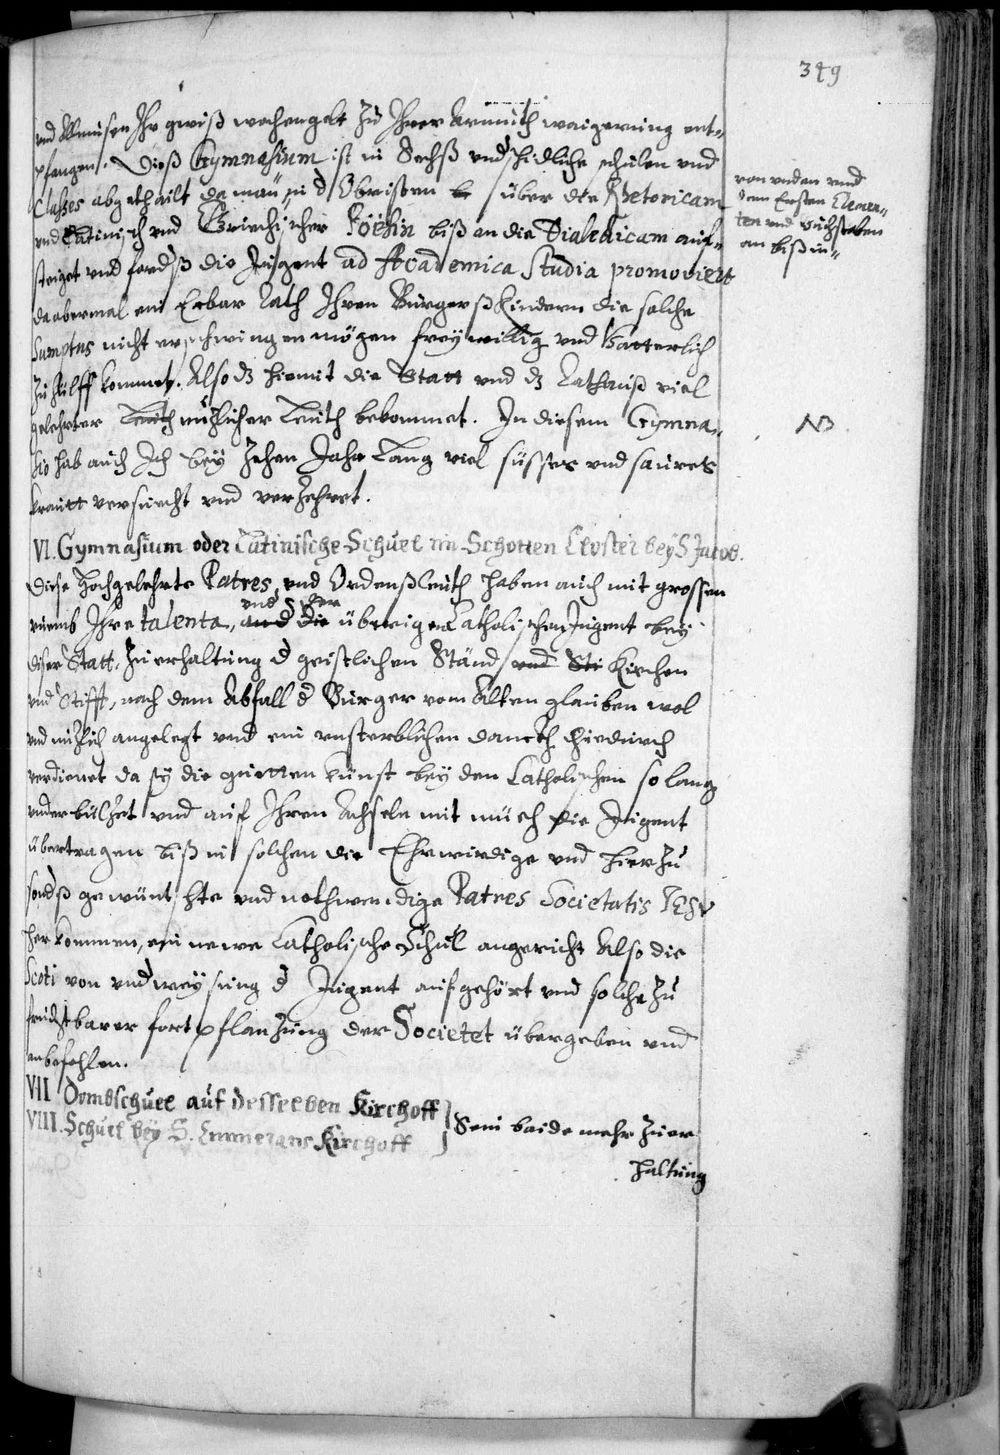 349
und Allmusen Ihr gwiß wochengelt zu Ihrer Armuth waigerung ent-
pfangen. Dieß Gymnasium ist in Sechß undschidliche schulen und
Classes abgetheilt da man in d Obristen über die Rhetoricam
und Latinisch und Griechischer Poësin biß an die Dialecticam auf-
steiget und die Jugent ad Academica studia promoviert
da abermal ein Erbar Rath Ihren Burgerß Kindern die solche
Sumptus nicht erschwingen mögen freywillig und Vatterlich
zu hülff kommet. Also dz hiemit die Statt und dz Rathauß viel
gelehrter Leuth nuzlicher Leuth bekommet. In diesem Gymna-
sio hab auch Ich bey zehen Jahr lang viel süsses und saures
krautt versucht und verzehret.
von unden und
dem Ersten Elemen-
ten und Buchstaben
an biß in-
NB
VI. Gymnasium oder Latinische Schuel im Schotten Closter bey S Jacob.
Diese Hochgelehrte Patres, und Ordenßleuth haben auch mit grossen
ruemb Ihre talenta, and die übrigen Catholischen Jugent bey
und der
diser Statt, zu erhaltung d geistlichen Ständ und Sti Kirchen
und Stifft, nach dem Abfall d Burger vom Alten glauben wol
und nuzlich angelegt und ein unsterblichen danckh hierdurch
verdienet da sy die guetten kunst bey den Catholischen so lang
und auf Ihren Achseln mit müeh die Jugent
übertragen biß in solchen die Ehrwirdige und hierzu
sondß gewünschte und nothwendige Patres Societatis IESV
herkommen, ein newe Catholische Schul angericht Also die
Scoti von undweysung d Jugent aufgehört und solche zu
fruchtbarer fortpflanzung der Societet übergeben und
anbefohlen.
VII Dombschuel auf desselben Kirchoff
VIII. Schuel bey S. Emmerams Kirchoff } Sein baide mehr zu er
haltung